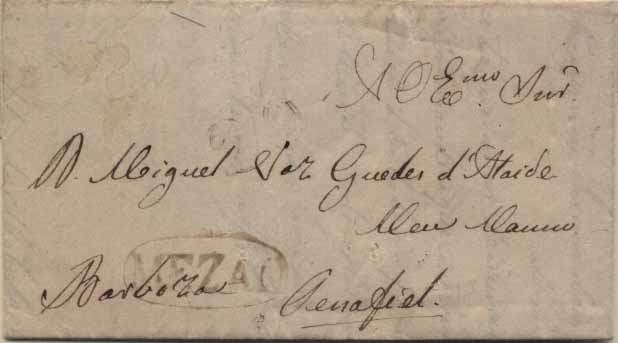 Ao Exmo. Snr.
D. Miguel Vaz Guedes d'Ataide
Meu Manno
MEZÃO
Barboza Penafiel.